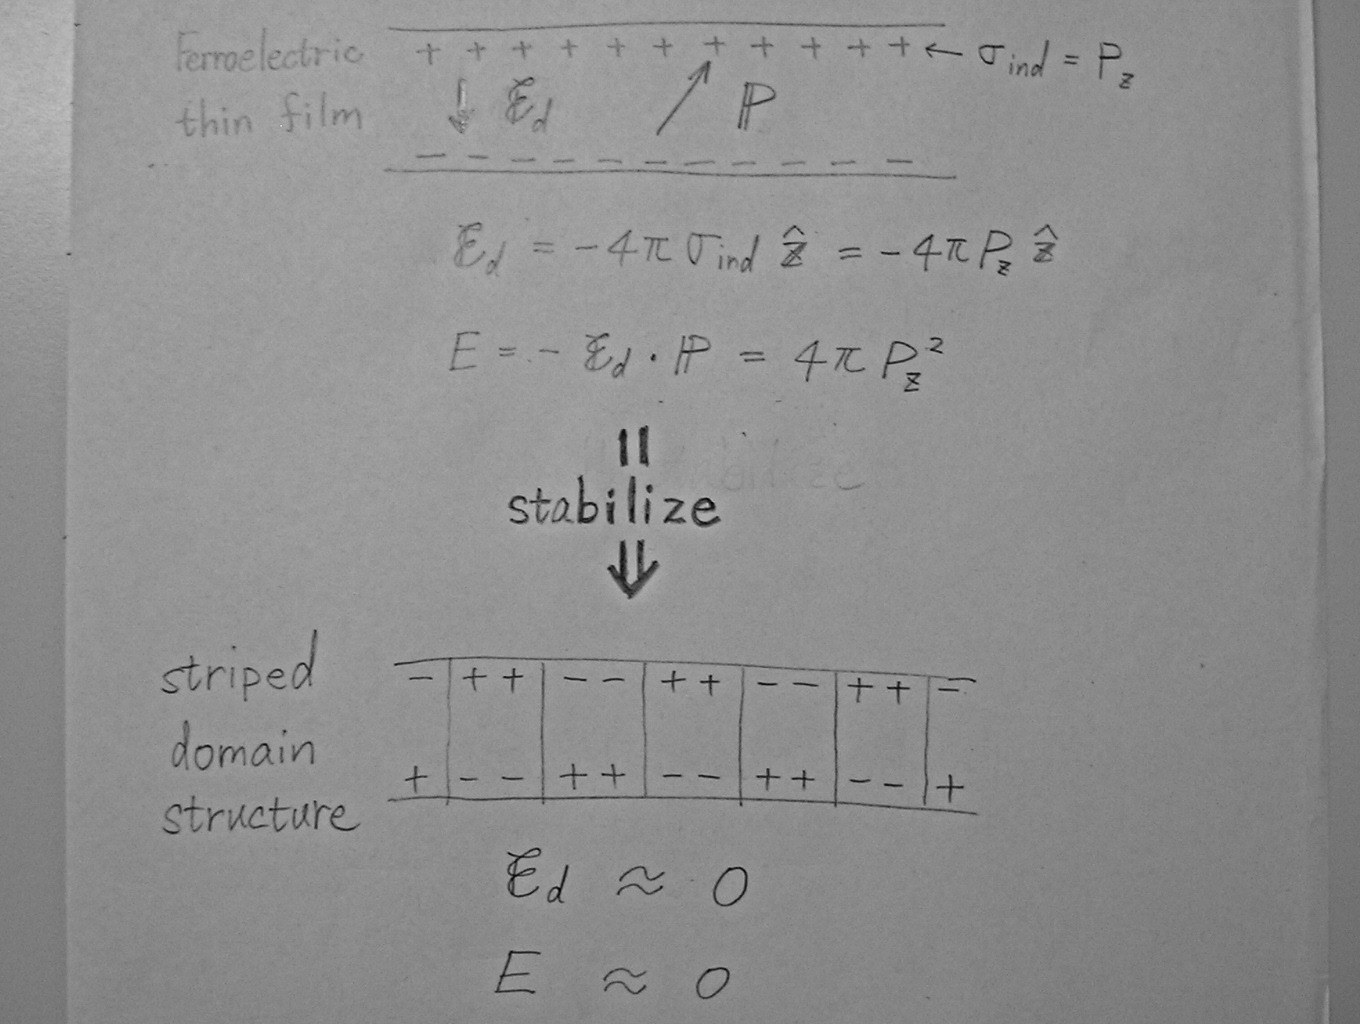 Ferroelectric + + + + + + + + + + + ← σind = Pz
thin film ↓ 𝓔d ↗ ℙ
− − − − − − − − − − −
𝓔d = −4π σind ẑ = −4π Pz ẑ
E = − 𝓔d · ℙ = 4π Pz²
stabilize
striped − + + − − + + − − + + −
domain
+ − − + + − − + + − − +
structure
𝓔d ≈ 0
E ≈ 0